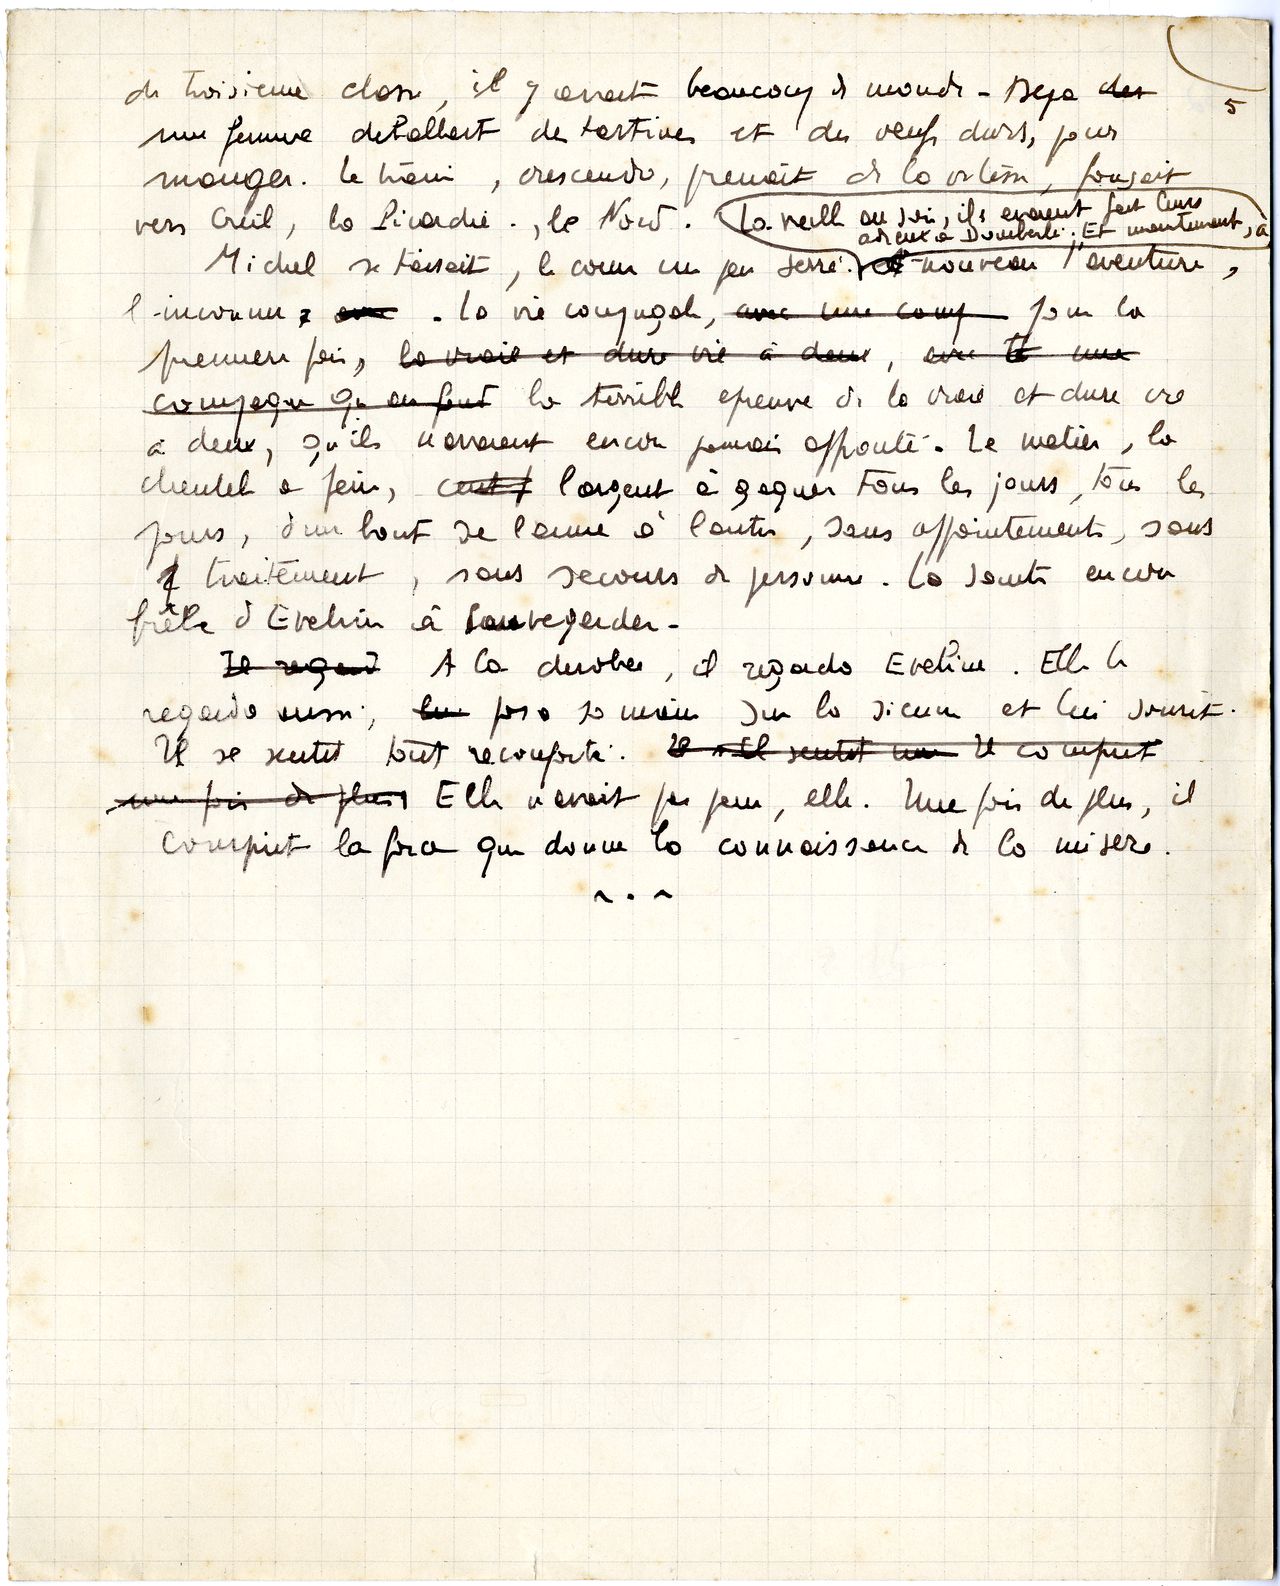 5
de troisieme classe, il y avait beaucoup de monde - Deja des
une femme deballait de tartines et des oeufs durs, pour
manger. Le train, crescendo, prenait de la vitesse, fonçait
vers Creil, la Picardie., le Nord. La veille au soir, ils avaient fait leurs
adieux à Domberlé. Et maintenant, à
Michel se taisait, le coeur un peu serré. nouveau l'aventure,
l'inconnu, avec. La vie conjugale, avec une comp pour la
premiere fois, la vraie et dure vie à deux, avec une
compagne qu la terrible epreuve de la vraie et dure vie
à deux, qu'ils n'avaient encore jamais affronté. Le metier, la
clientele a faire, l'argent à gagner tous les jours, tous les
jours, d'un bout de l'annee à l'autre, sans appointements, sans
traitement, sans secours de personne. La santé encore
frêle d'Eveline à sauvegarder -
Il regard A la derobee, il regarda Eveline. Elle le
regarda aussi, lui posa sa main sur la sienne et lui sourit.
Il se sentit tout reconforté. Il sentit une Il comprit
une fois de plus Elle n'avait pas peur, elle. Une fois de plus, il
comprit la force que donne la connaissance de la misere.
~ . ~